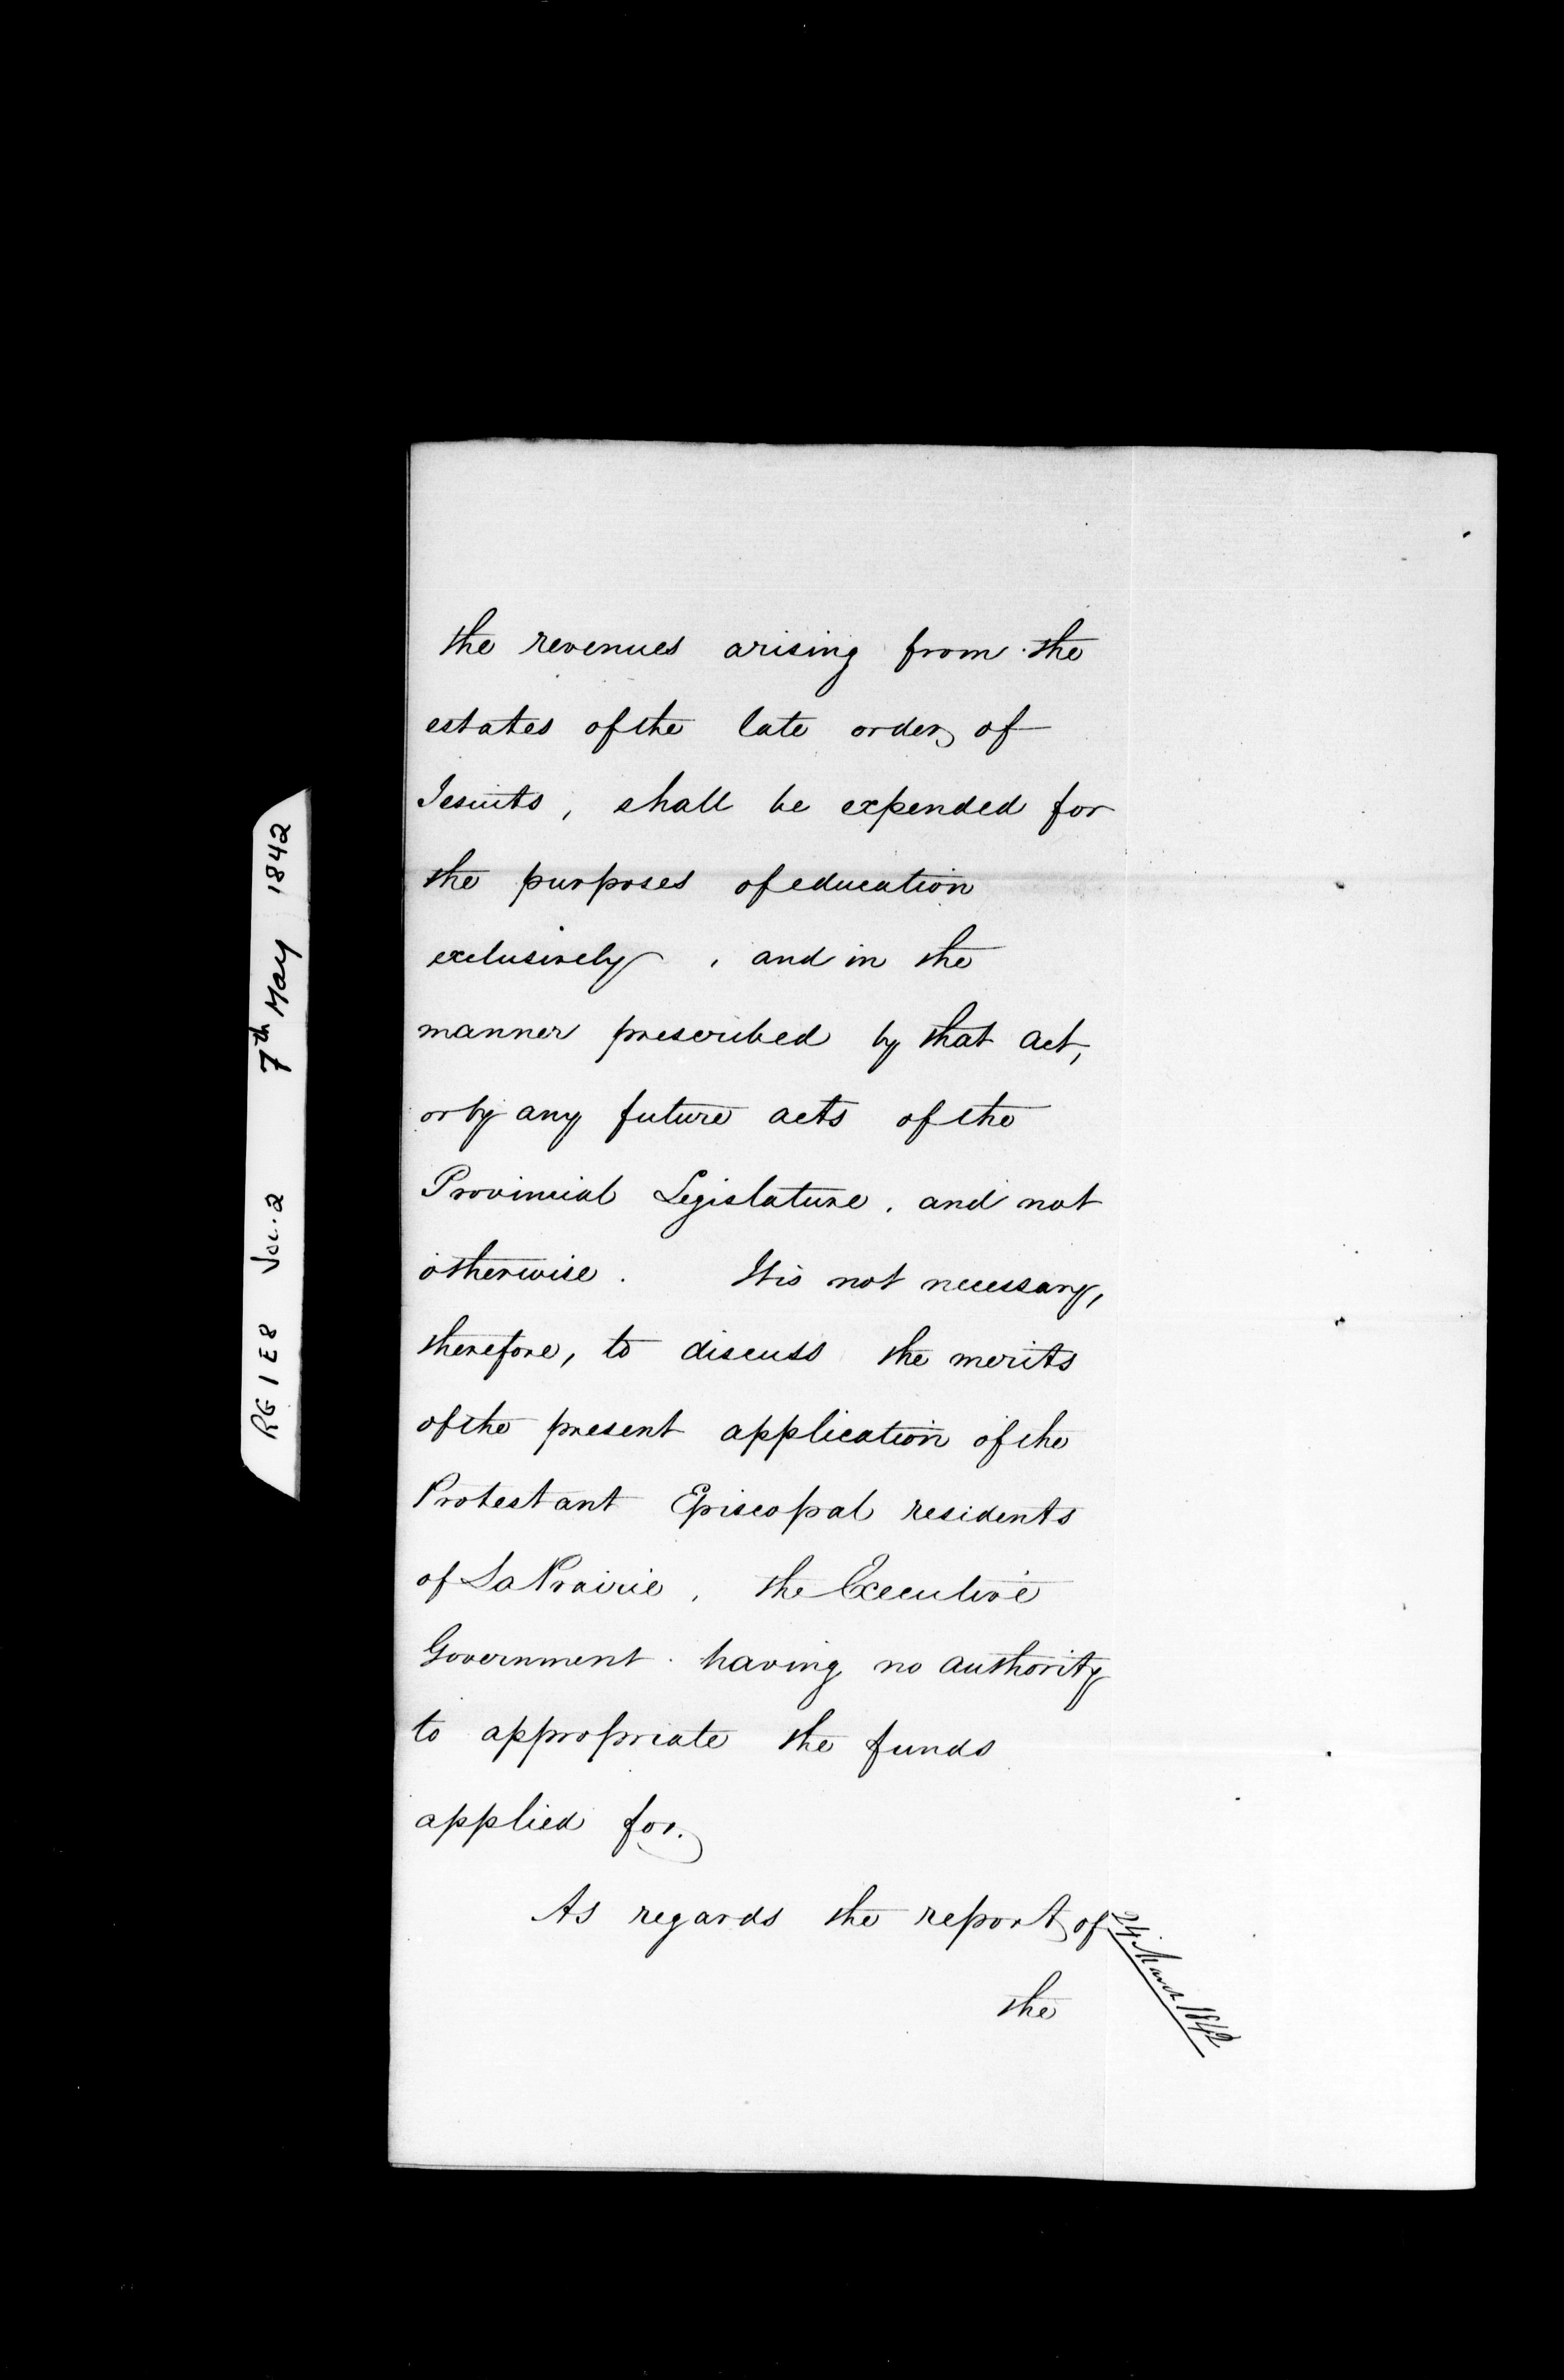 RG 1 E8 Vol. 2 7th May 1842
the revenues arising from the
estates of the late order of
Jesuits, shall be expended for
the purposes of education
exclusively, and in the
manner prescribed by that act,
or by any future acts of the
Provincial Legislature, and not
otherwise. It is not necessary,
therefore, to discuss the merits
of the present application of the
Protestant Episcopal residents
of La Prairie, the Executive
Government having no authority
to appropriate the funds
applied for.
As regards the report of
24 March 1842
the